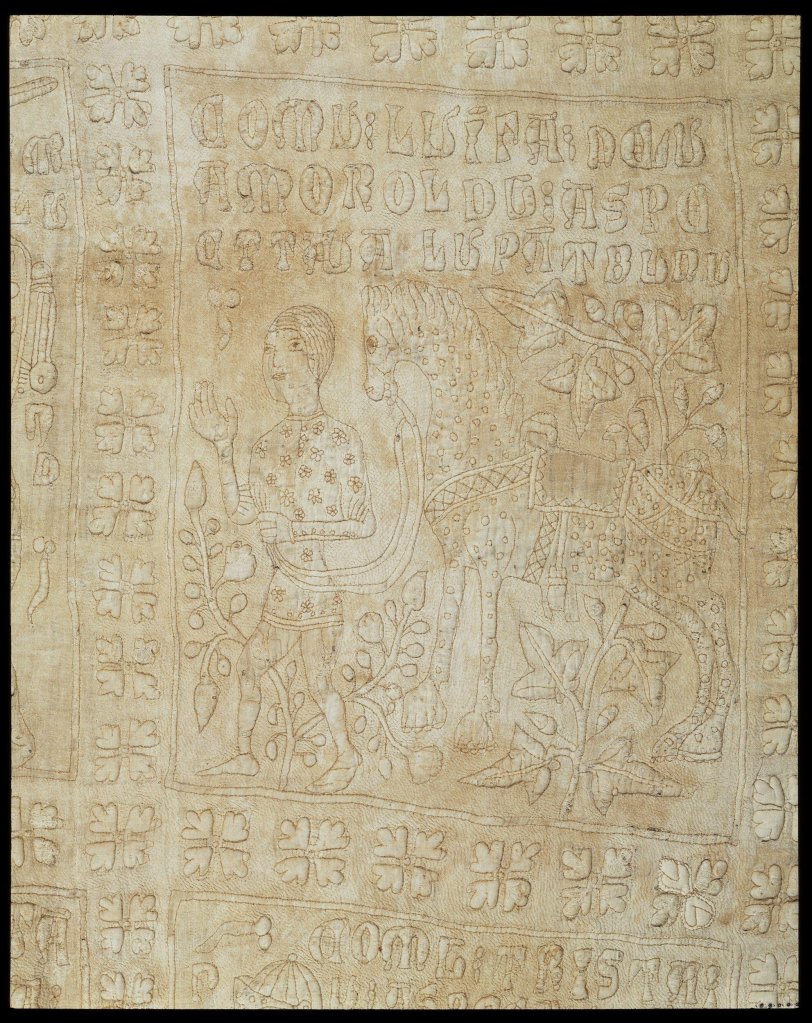 COMU: LU IFA: DELU
AMOROLDU: ASPE
CTTAUA LU PATRUNU
COMU: TRISTAI